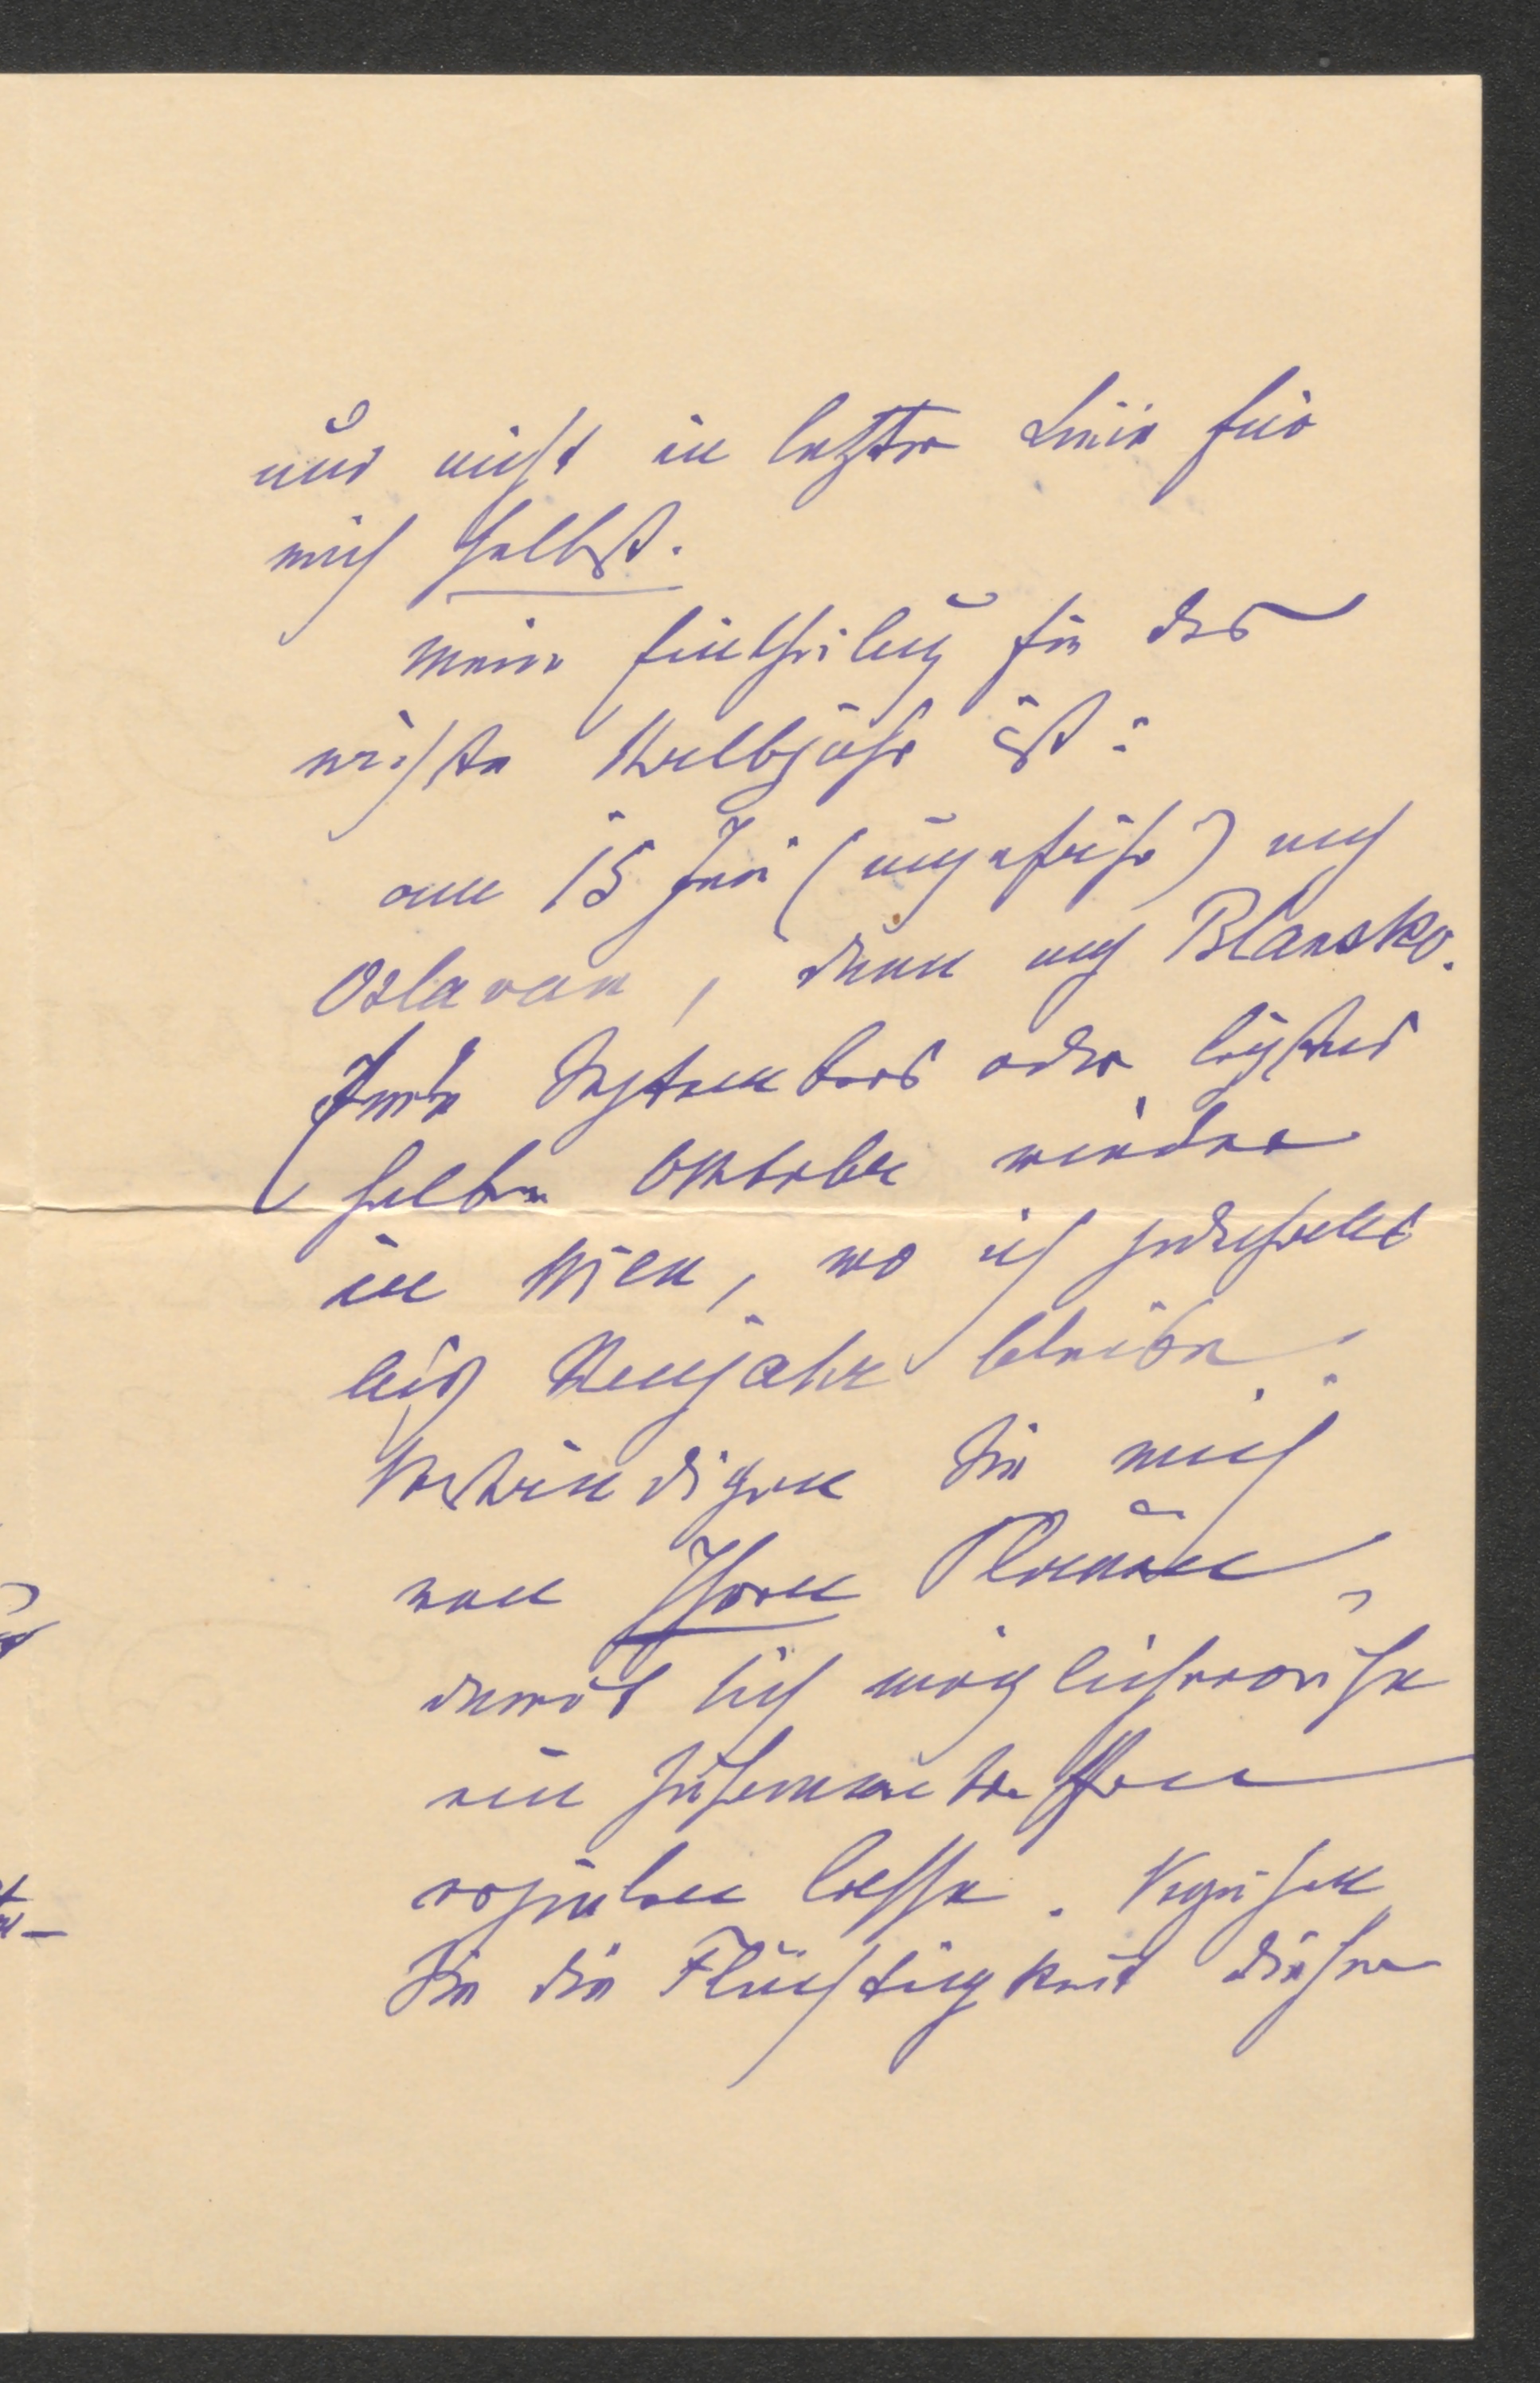 und nicht in letzter Linie für
mich selbst.
Meine Eintheilung für das
nächste Halbjahr ist:
am 15 Juni (ungefähr) nach
Oslavan, dann nach Blansko.
Ende Septembers oder längstens
halben Oktober wieder
in Wien, wo ich jedenfalls
bis Neujahr bleibe.
Verständigen Sie mich
von Ihren Plänen,
damit sich möglicherweise
ein Zusammentreffen
erzielen lasse. Verzeihen
Sie die Flüchtigkeit dieser